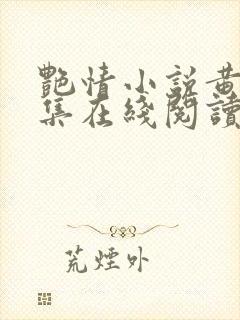 艷情小說黃
集在綫閱讀
荒煙外